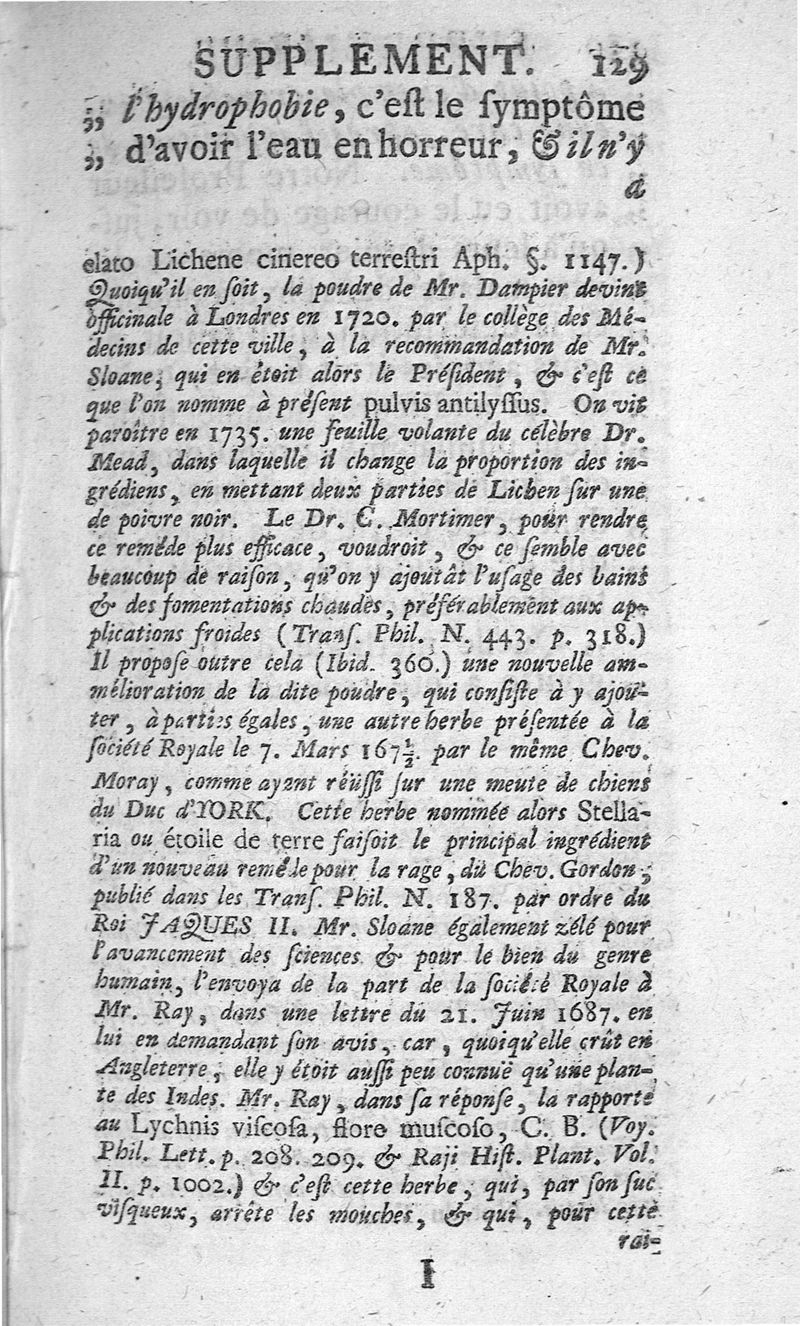 SUPPLEMENT. 129
„ l'hydrophobie, c'eſt le ſymptôme
„ d'avoir l'eau en horreur, & il n'y
a
elato Lichene cinereo terreſtri Aph. §. 1147.)
Quoiqu'il en ſoit, la poudre de Mr. Dampier devint
officinale à Londres en 1720. par le collège des Mé-
decins de cette ville, à la recommandation de Mr.
Sloane, qui en étoit alors le Préſident, & c'eſt ce
que l'on nomme à préſent pulvis antilyſſus. On vit
paroître en 1735. une feuille volante du célèbre Dr.
Mead, dans laquelle il change la proportion des in-
grédiens, en mettant deux parties de Lichen ſur une
de poivre noir. Le Dr. C. Mortimer, pour rendre
ce reméde plus efficace, voudroit, & ce ſemble avec
beaucoup de raiſon, qu'on y ajoutât l'uſage des bains
& des fomentations chaudes, préférablement aux ap-
plications froides (Tranſ. Phil. N. 443. p. 318.)
Il propoſe outre cela (Ibid. 360.) une nouvelle am-
mélioration de la dite poudre, qui conſiſte à y ajou-
ter, à parties égales, une autre herbe préſentée à la
ſociété Royale le 7. Mars 167½. par le même Chev.
Moray, comme ayant réüſſi ſur une meute de chiens
du Duc d'YORK. Cette herbe nommée alors Stella-
ria ou étoile de terre faiſoit le principal ingrédient
d'un nouveau reméde pour la rage, du Chev. Gordon,
publié dans les Tranſ. Phil. N. 187. par ordre du
Roi JAQUES II. Mr. Sloane également zélé pour
l'avancement des ſciences & pour le bien du genre
humain, l'envoya de la part de la ſociété Royale à
Mr. Ray, dans une lettre du 21. Juin 1687. en
lui en demandant ſon avis, car, quoiqu'elle crût en
Angleterre, elle y étoit auſſi peu connuë qu'une plan-
te des Indes. Mr. Ray, dans ſa réponſe, la rapporte
au Lychnis viſcoſa, flore muſcoſo, C. B. (Voy.
Phil. Lett. p. 208. 209. & Raji Hiſt. Plant. Vol.
II. p. 1002.) & c'eſt cette herbe, qui, par ſon ſuc
viſqueux, arrête les mouches, & qui, pour cette
rai-
I